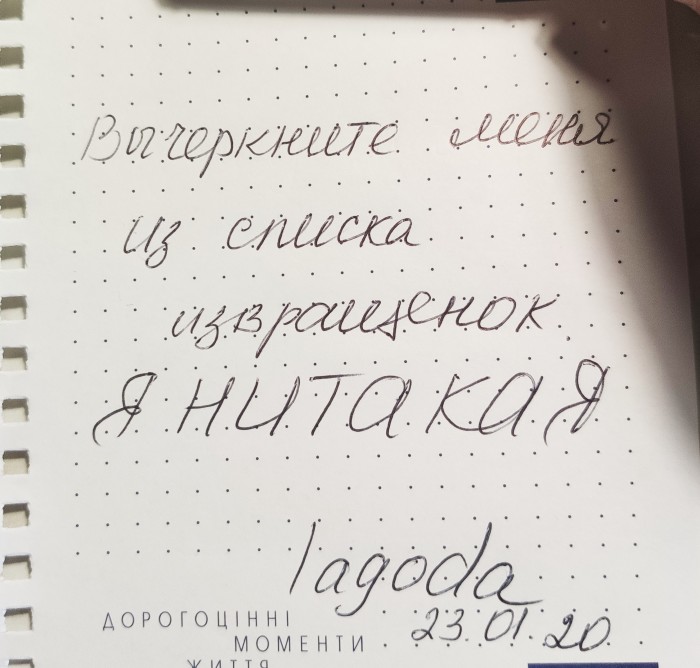 Вычеркните меня
из списка
извращенок.
Я НИТАКАЯ
lagoda
23.01.20
ДОРОГОЦІННІ
МОМЕНТИ
ЖИТТЯ